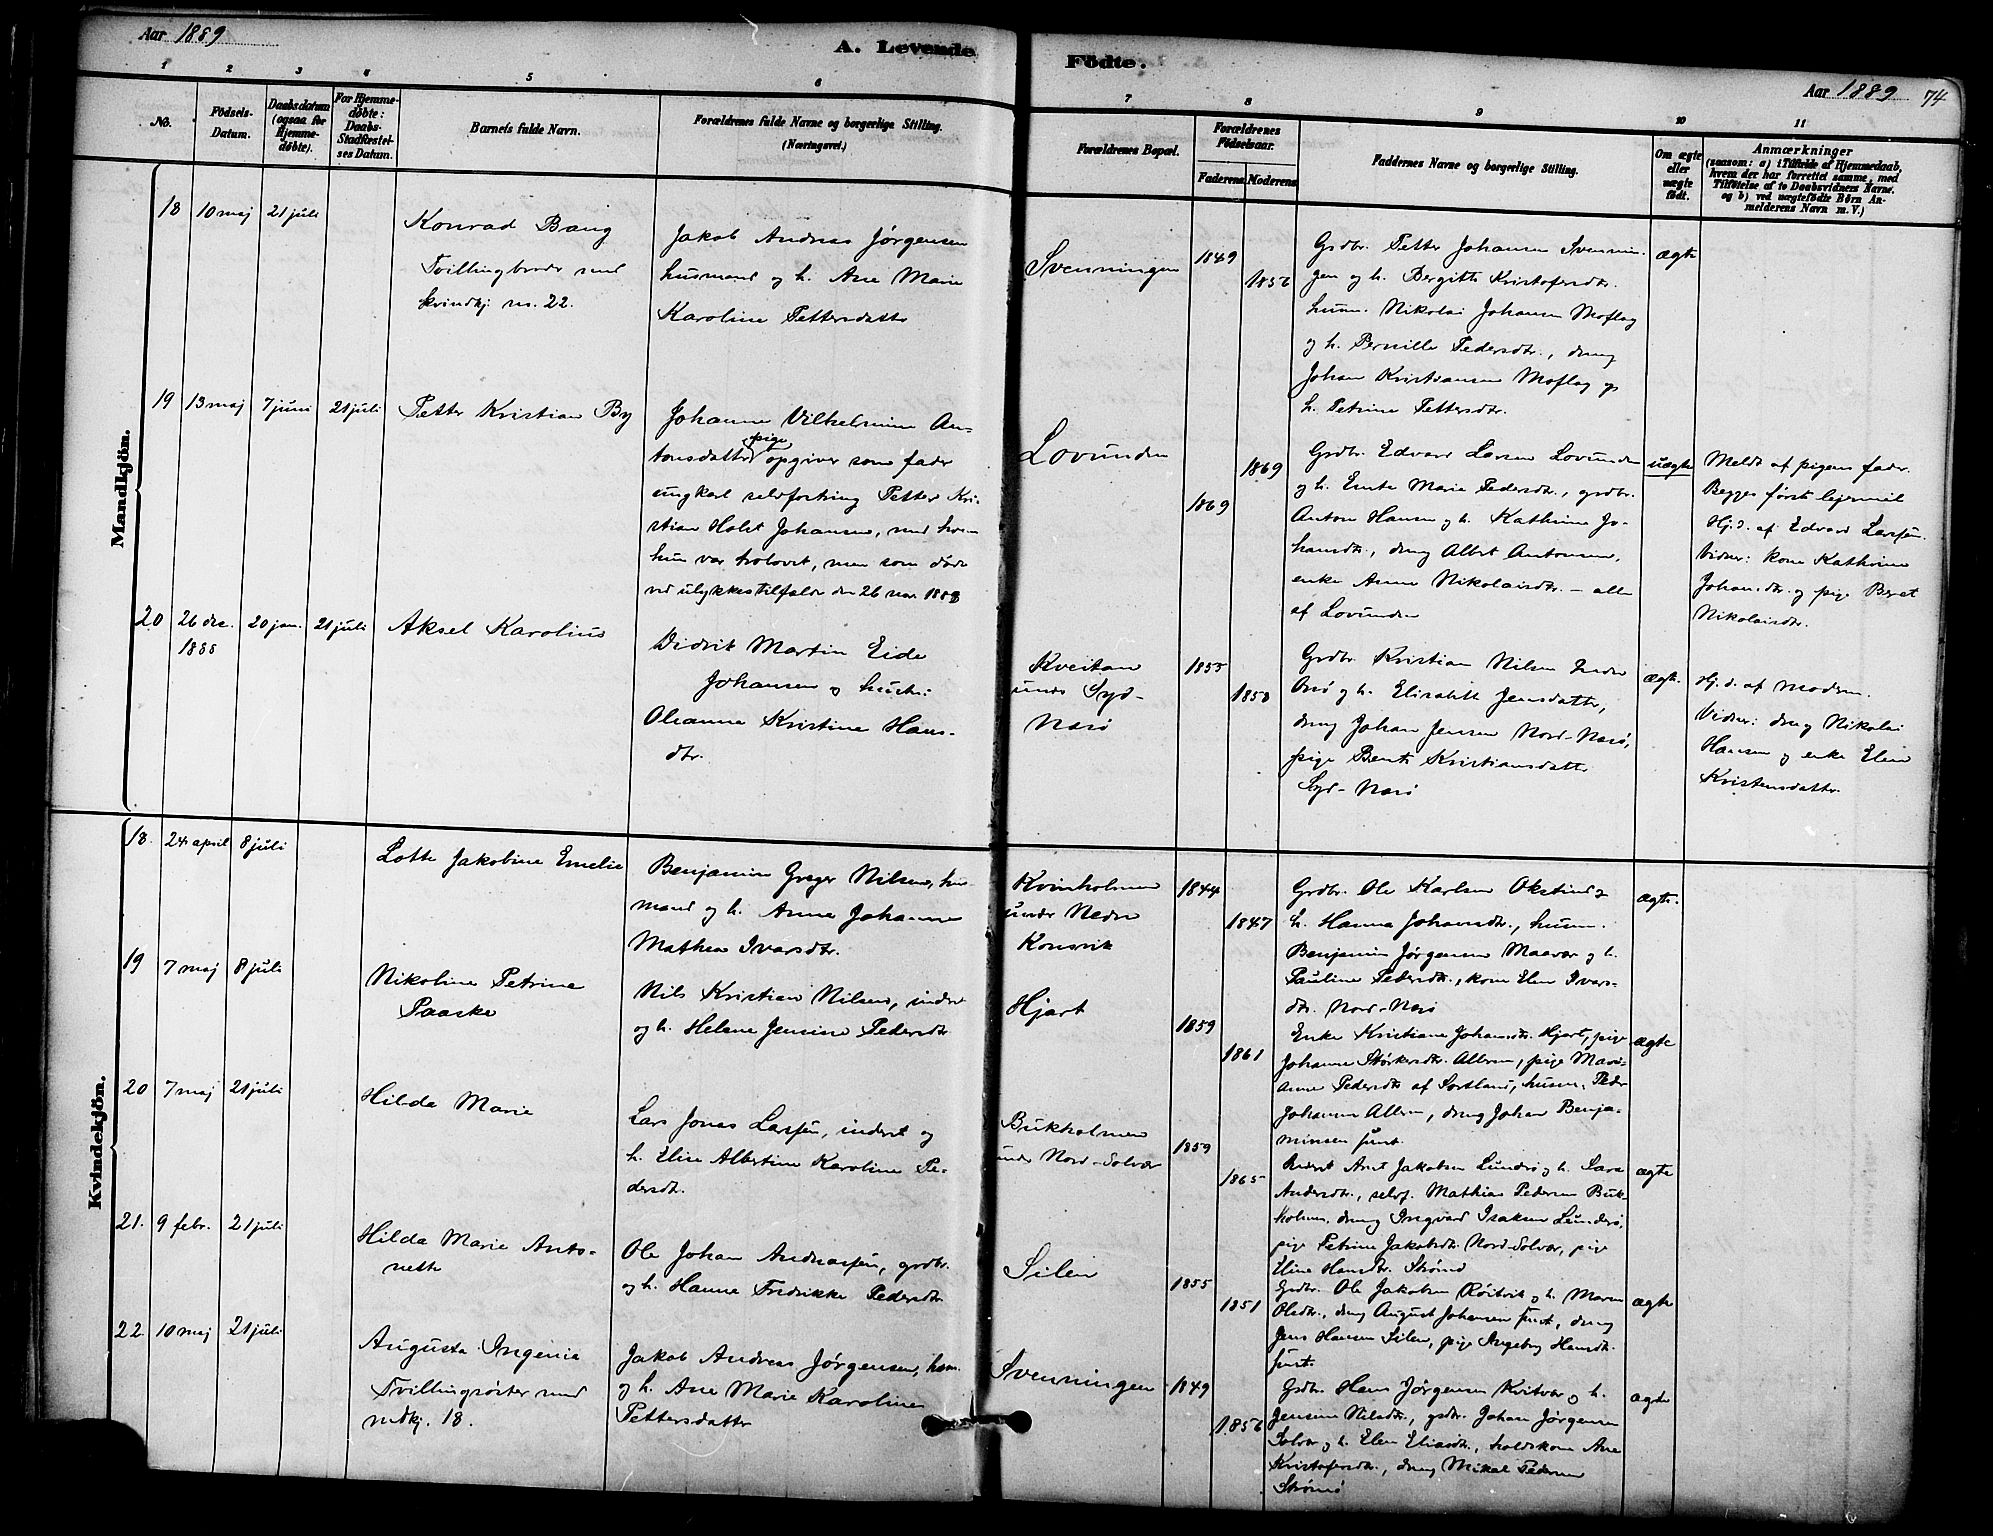 Aar 1889
A. Levende
1 2 3 4 5 6
No.
Fødsels-
Datum.
Daabsdatum
(ogsaa for
Hjemme-
døbte).
For Hjemme-
døbte:
Daabs-
Stadfæstel-
ses Datum.
Barnets fulde Navn.
Forældrenes fulde Navne og borgerlige Stilling.
(Næringsvei.)
Mandkjön.
18 10 maj 21 juli
Konrad Bang
Tvillingbroder med
kvindkj n. 22.
Jakob Andreas Jørgensen
husmand og h. Ane Marie
Karoline Pettersdatter
19 13 maj 7 juni 21 juli
Petter Kristian By
Johanne Vilhelmine An-
tonsdatter pige opgiver som fader
ungkarl selvfostring Petter Kri-
stian Holst Johansen, med hvem
hun var trolovet, men som døde
ved ulykkestilfælde den 26 nov. 1888
20 26 dec. 20 jan. 21 juli
1888
Aksel Karolius
Didrik Martin Eide
Johansen og hustr:
Oleanna Kristine Hans-
dtr.
Kvindekjön.
18. 24 april 8 juli
Lotte Jakobine Emelie
Benjamin Greger Nilsen, hus-
mand og h. Anne Johanna
Mathea Ivarsdtr.
19 7 maj 8 juli
Nikoline Petrine
Paaske
Nils Kristian Nilsen, inderst
og h. Helene Jensine Pedersdtr.
20 7 maj 21 juli
Hilda Marie
Lars Jonas Larssen, inderst og
h. Elise Albertine Karoline Pe-
dersdt.
21. 9 febr. 21 juli
Hilda Marie Anto-
nette
Ole Johan Andreassen, grdbr.
og h. Hanna Fredrikke Pedersdtr.
22. 10 maj 21 juli
Augusta Ingenia
Tvillingsøster med
mdkj. 18.
Jakob Andreas Jørgensen, husm.
og h. Ane Marie Karoline
Pettersdatter
Födte.
Aar 1889 74
7 8 9 10 11
Forældrenes Bopæl.
Forældrenes
Födselsaar.
Faderens Moderens
Faddernes Navne og borgerlige Stilling.
Om ægte
eller
uægte
födt.
Anmærkninger
(saasom: a) i Tilfælde af Hjemmedaab,
hvem der har forrettet samme, med
Tilföielse af to Daabsvidners Navne,
og b) ved uægtefödte Börn An-
melderens Navn m. V.)
Svenningen 1849 1856
Grdbr. Petter Johansen Svennin-
gen og h. Bergitte Kristofersdtr.
husm. Nikolai Johansen Moflag
og h. Pernille Pedersdtr., dreng
Johan Kristiansen Moflag og
h. Petrine Pettersdtr.
ægte
Lovunden 1869 1869
Grdbr. Edvard Larsen Lovunden
og h. Ente Marie Pedersdtr., grdbr.
Anton Hansen og h. Kathrine Jo-
hansdtr., dreng Albert Antonsen,
enke Anne Nikolaisdtr. – alle
af Lovunden
uægte
Meldt af pigens fader.
Begges første lejermaal
Hj.d. af Edvard Larssen.
Vidner: kone Kathrine
Johansdtr. og pige Beret
Nikolaisdtr.
Kveitan
under Syd-
Nesø
1855 1850
Grdbr. Kristian Nilsen Indre
Onø og h. Elisabeth Jensdatter,
dreng Johan Jensen Nord-Nesø,
pige Bente Kristiansdatter
Syd-Nesø
ægte.
Hj.d. af moderen.
Vidner: dreng Nikolai
Hansen og enke Elen
Kristensdatter.
Kvinholmen
under Nedre
Konsvik
1844 1847
Grdbr. Ole Karlsen Okstind og
h. Hanna Johansdtr., husm.
Benjamin Jørgensen Maavær og h.
Pauline Pedersdtr., kone Elen Ivars-
dtr. Nord-Nesø
ægte.
Hjart 1859 1861
Enke Kristiane Johansdtr. Hjart, pige
Johanna Størkersdtr. Alteren, pige Mari-
anne Pedersdtr. af Sortland, husm. Peder
Johansen Alteren, dreng Johan Benja-
minsen sunst.
ægte
Bukholmen
under Nord-Solvær
1859 1865
Inderst Arnt Jakobsen Lunderø og h. Sara
Andersdtr., selvf. Mathias Pedersen Buk-
holmen, dreng Ingvard Isaksen Lunderø,
pige Petrine Jakobsdtr. Nord-Solvær, pige
Eline Hansdtr. Strømø
ægte
Silen 1855 1851
Grdbr. Ole Jakobsen Røitvik og h. Maren
Olsdtr., dreng August Johansen sunst., dreng
Jens Hansen Silen, pige Ingeborg Hansdtr.
sunst.
ægte
Svenningen 1849 1856
Grdbr. Hans Jørgensen Kvitvær og h.
Jensine Nilsdtr., grdbr. Johan Jørgensen
Solvær og h. Elen Eliasdtr., holdskone Ane
Kristofersdtr., dreng Mikal Pedersen
Strømø
ægte